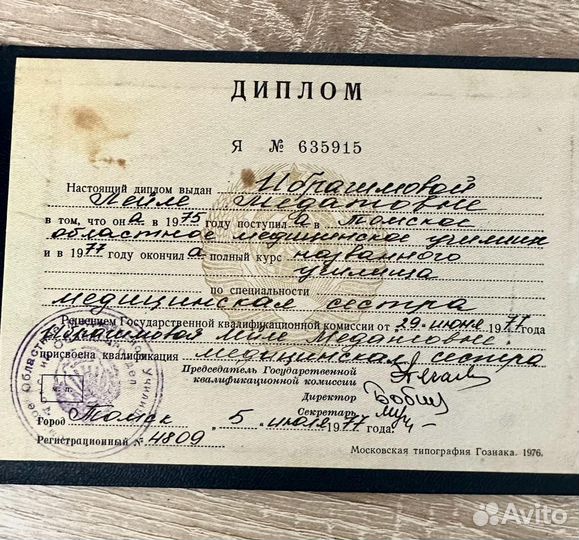 ДИПЛОМ
Я № 635915
Настоящий диплом выдан Ибрагимовой
Лейле Медатовне
в том, что она в 1975 году поступила в Томское
областное медицинское училище
и в 1977 году окончила полный курс названного
училища
по специальности
медицинская сестра
Решением Государственной квалификационной комиссии от 29 июня 1977 года
Ибрагимовой Медатовне
присвоена квалификация медицинская сестра
Председатель Государственной
квалификационной комиссии
Директор
Секретарь
Город Томск 5 июля 1977 года.
Регистрационный № 4809
Московская типография Гознака. 1976.
Avito